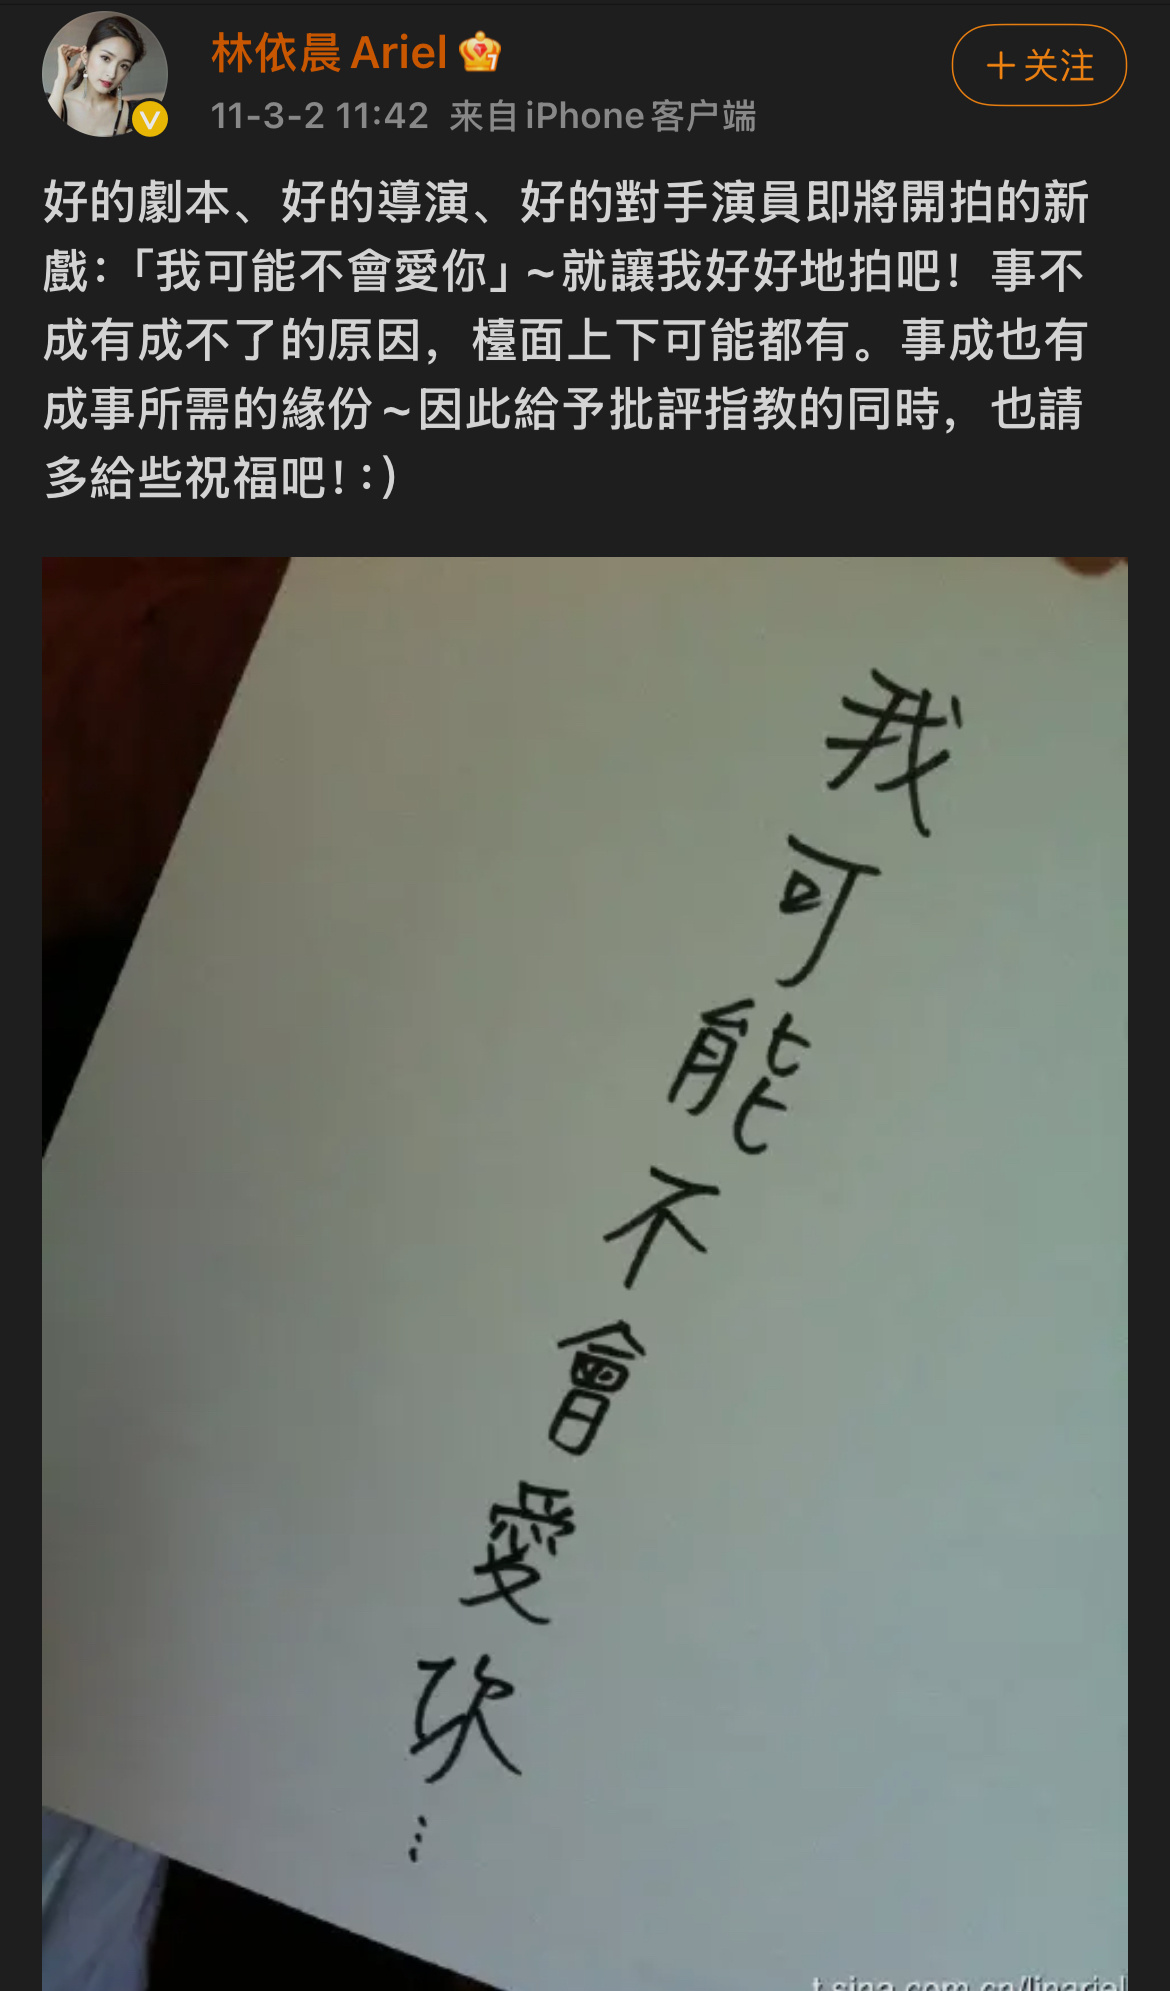 林依晨Ariel
+关注
11-3-2 11:42 来自iPhone客户端
好的劇本、好的導演、好的對手演員即將開拍的新
戲：「我可能不會愛你」~就讓我好好地拍吧！事不
成有成不了的原因，檯面上下可能都有。事成也有
成事所需的緣份~因此給予批評指教的同時，也請
多給些祝福吧！:)
我可能不會愛
…
t.sina.com.cn/linariel